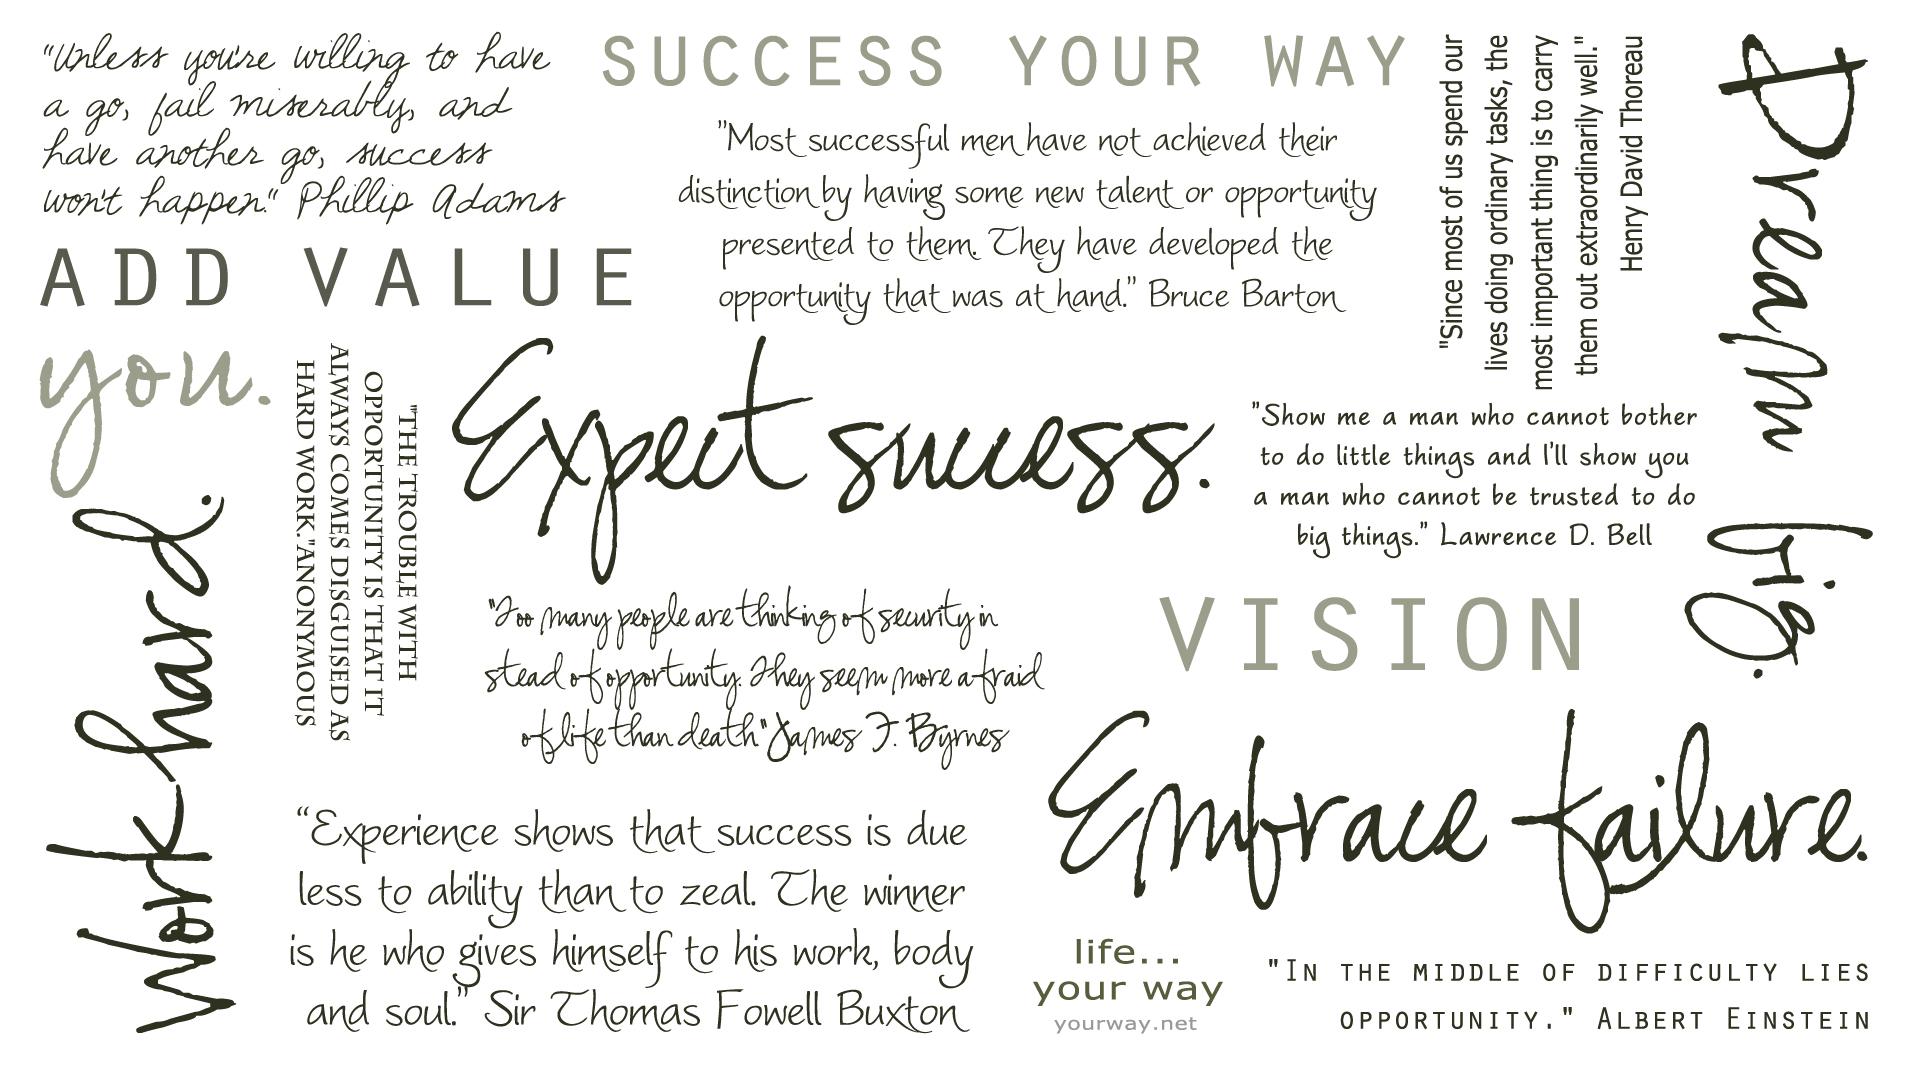 "Unless you're willing to have
a go, fail miserably, and
have another go, success
won't happen." Phillip Adams
SUCCESS YOUR WAY
"Most successful men have not achieved their
distinction by having some new talent or opportunity
presented to them. They have developed the
opportunity that was at hand." Bruce Barton
"Since most of us spend our
lives doing ordinary tasks, the
most important thing is to carry
them out extraordinarily well."
Henry David Thoreau
Dream big.
ADD VALUE
you.
"THE TROUBLE WITH
OPPORTUNITY IS THAT IT
ALWAYS COMES DISGUISED AS
HARD WORK." ANONYMOUS
Expect success.
"Show me a man who cannot bother
to do little things and I'll show you
a man who cannot be trusted to do
big things." Lawrence D. Bell
Work hard.
"Too many people are thinking of security in
stead of opportunity. They seem more afraid
of life than death" James F. Byrnes
VISION
Embrace failure.
“Experience shows that success is due
less to ability than to zeal. The winner
is he who gives himself to his work, body
and soul.” Sir Thomas Fowell Buxton
life...
your way
yourway.net
"IN THE MIDDLE OF DIFFICULTY LIES
OPPORTUNITY." ALBERT EINSTEIN